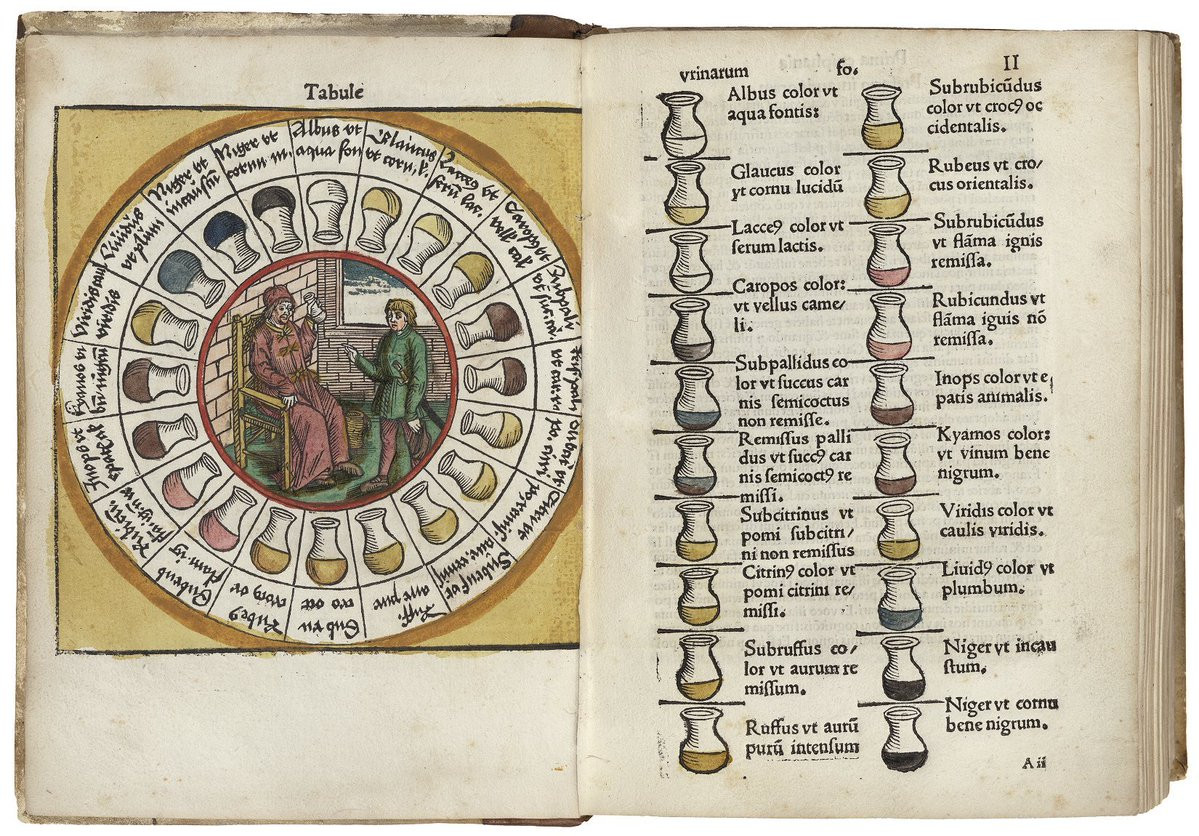 Tabule
Albus vt
aqua fon
Glaucus
vt corn, l.
Lacce9 vt
serū lac.
Rube9
Subru
Inop9 vt
Liuidus
vt plumī
Niger vt
incaustū
Niger vt
cornu m.
vrinarum fo. II
Albus color vt
aqua fontis:
Glaucus color
yt cornu lucidū
Lacce9 color vt
serum lactis.
Caropos color:
vt vellus came⸗
li.
Subpallidus co⸗
lor vt succus car
nis semicoctus
non remisse.
Remissus palli
dus vt succ9 car
nis semicoct9 re
missi.
Subcitrinus vt
pomi subcitri⸗
ni non remissus
Citrin9 color vt
pomi citrini re⸗
missi.
Subruffus co⸗
lor vt aurum re
missum.
Ruffus vt aurū
purū intensum
Subrubicūdus
color vt croc9 oc
cidentalis.
Rubeus vt cro⸗
cus orientalis.
Subrubicūdus
vt flāma ignis
remissa.
Rubicundus vt
flāma iguis nō
remissa.
Inops color vt e
patis animalis.
Kyamos color:
vt vinum bene
nigrum.
Viridis color vt
caulis viridis.
Liuid9 color vt
plumbum.
Niger vt incau
stum.
Niger vt cornu
bene nigrum.
A ii